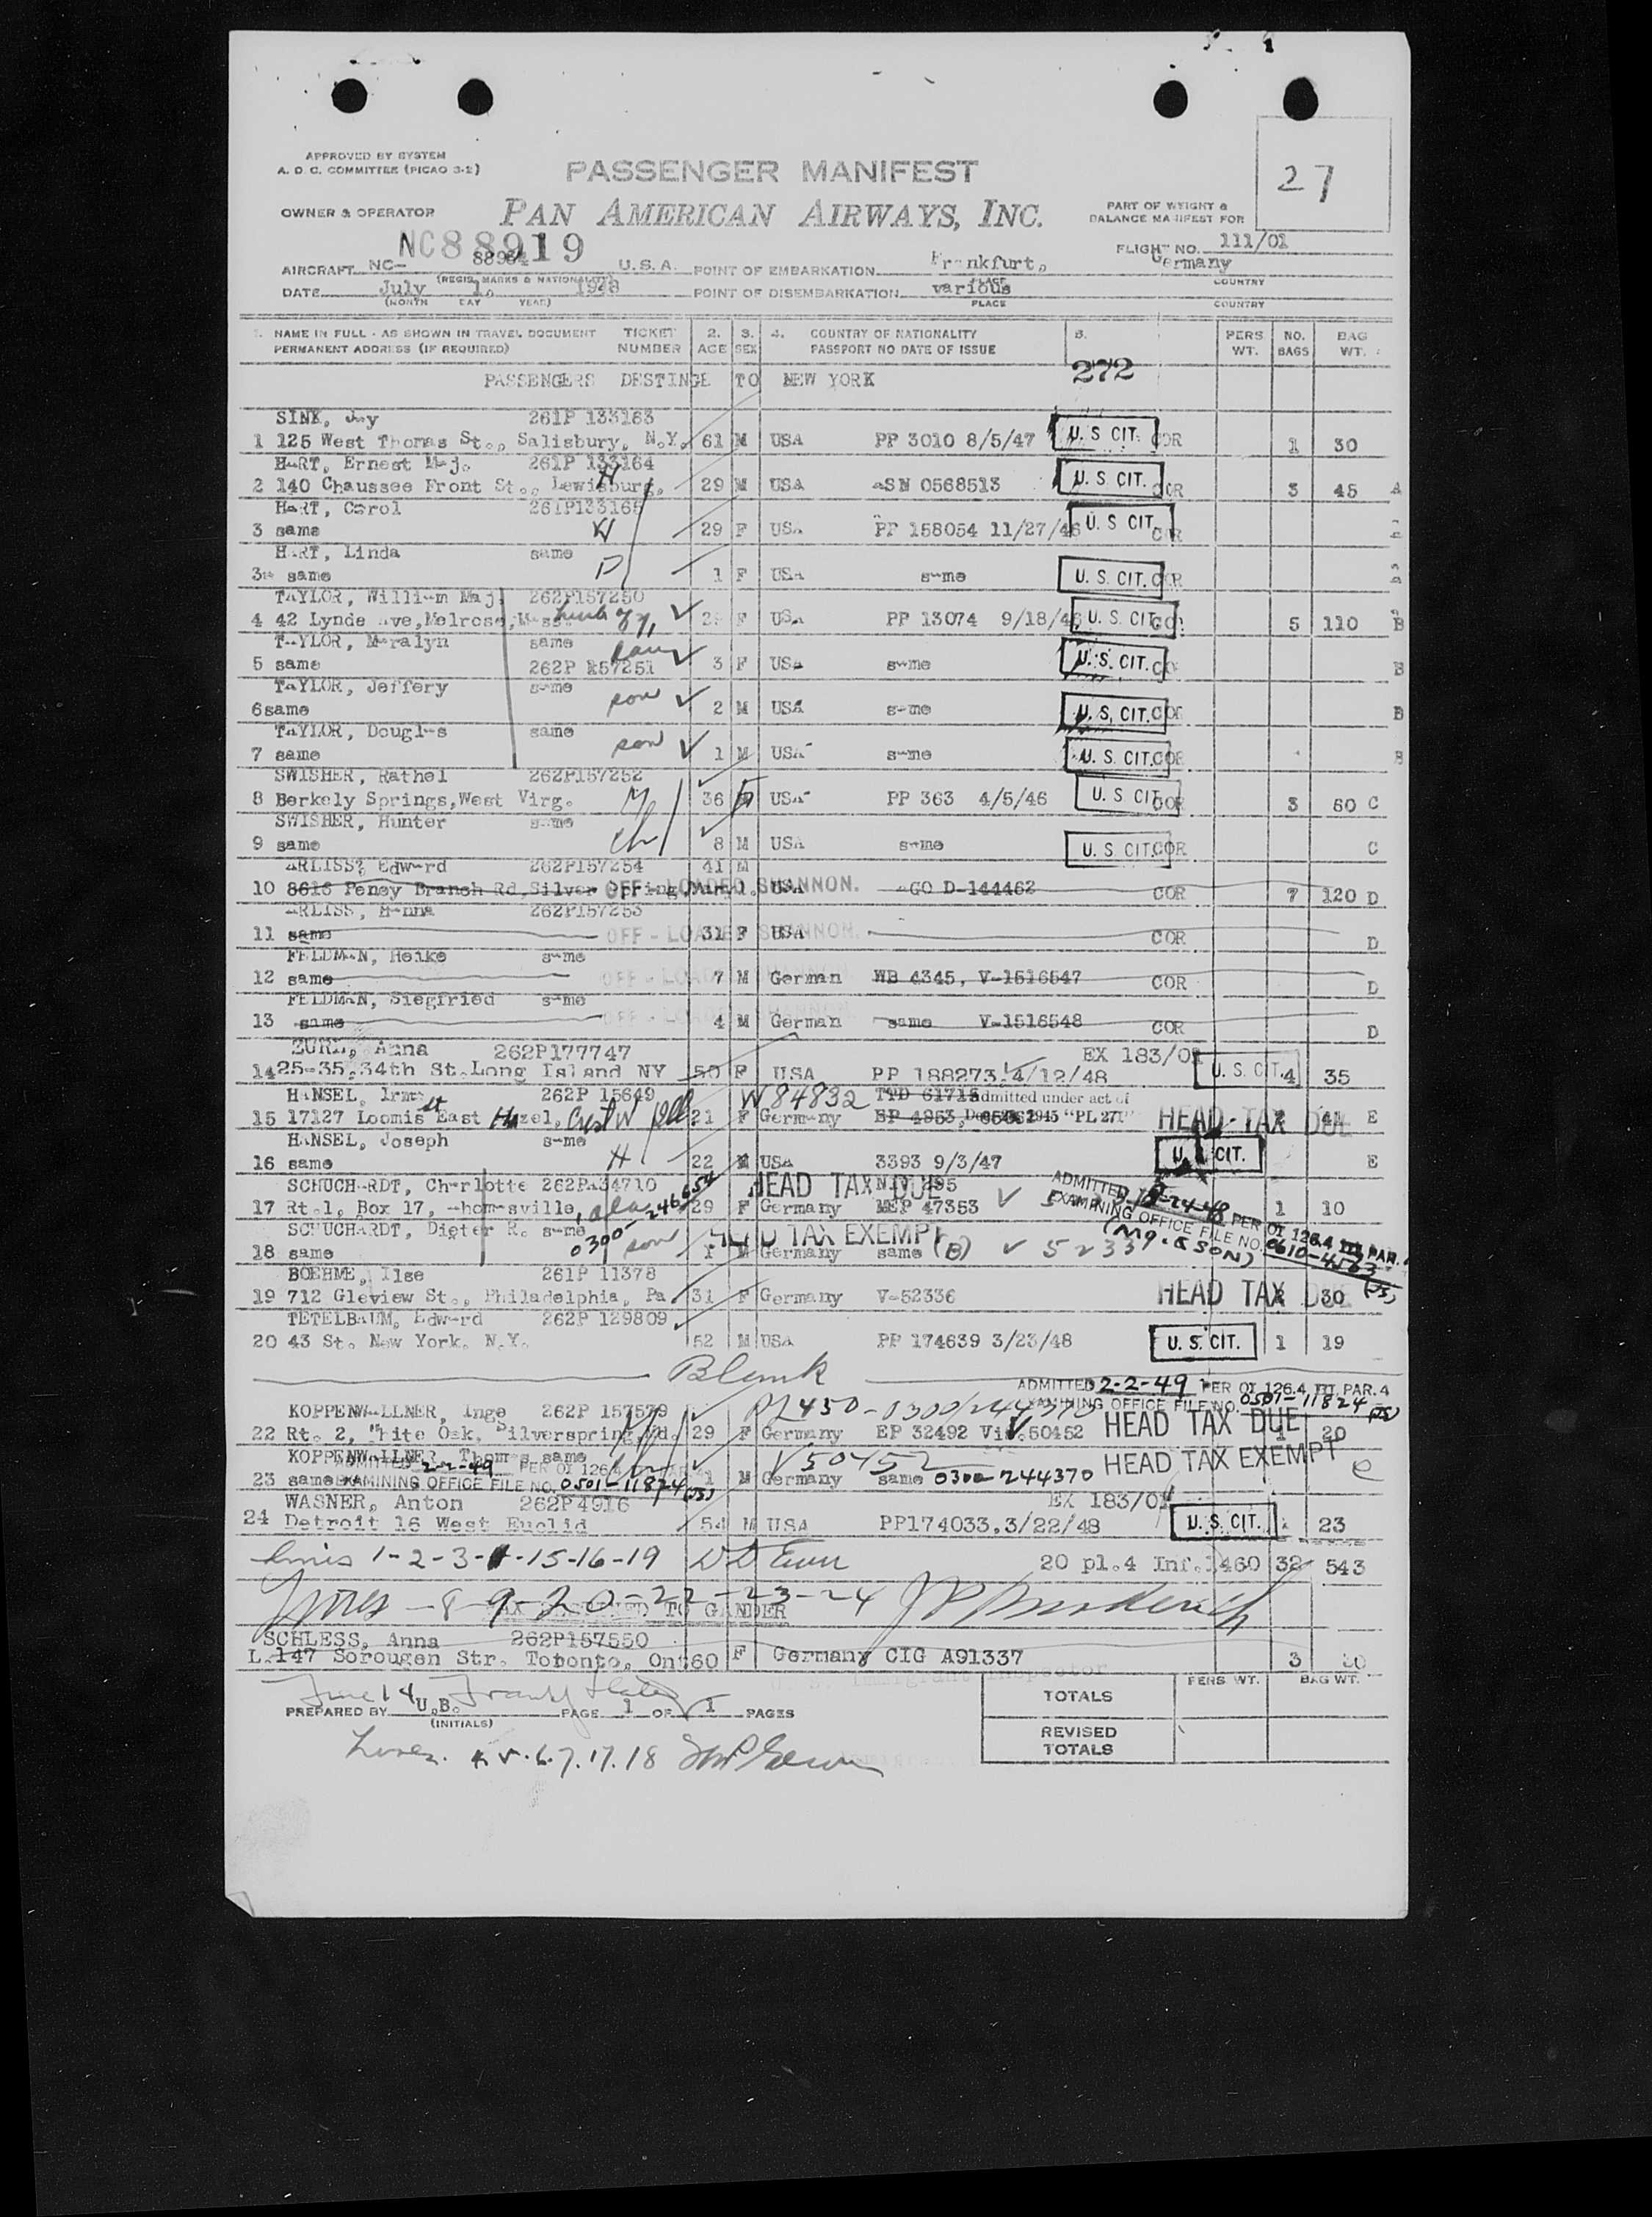 27
APPROVED BY SYSTEM
A. D. C. COMMITTEE (PICAO 3-2)
PASSENGER MANIFEST
OWNER & OPERATOR
PAN AMERICAN AIRWAYS, INC.
PART OF WEIGHT &
BALANCE MANIFEST FOR
NC88919
FLIGHT NO. 111/01
AIRCRAFT NC- U. S. A. POINT OF EMBARKATION Frankfurt, Germany
(REGIS. MARKS & NATIONALITY) PLACE COUNTRY
DATE July 1, 1948 POINT OF DISEMBARKATION various
(MONTH DAY YEAR) PLACE COUNTRY
1. NAME IN FULL - AS SHOWN IN TRAVEL DOCUMENT TICKET 2. 3. 4. COUNTRY OF NATIONALITY 5. PERS NO. BAG
PERMANENT ADDRESS (IF REQUIRED) NUMBER AGE SEX PASSPORT NO DATE OF ISSUE WT. BAGS WT.
PASSENGERS DESTINED TO NEW YORK 272
SINK, Jay 261P 133163
1 125 West Thomas St., Salisbury, N.Y. 61 M USA PP 3010 8/5/47 U. S CIT. COR 1 30
HART, Ernest Maj. 261P 133164
2 140 Chaussee Front St., Lewisburg, H 29 M USA ASN 0568513 U. S CIT. COR 3 45 A
HART, Carol 261P133165
3 same W 29 F USA PP 158054 11/27/46 U. S CIT. COR
HART, Linda same
3a same D 1 F USA same U. S. CIT. COR
TAYLOR, William Maj. 262P157250
4 42 Lynde Ave, Melrose, Mass F USA PP 13074 9/18/46 U. S. CIT. COR 5 110 B
TAYLOR, Maralyn same
5 same 262P 157251 3 F USA same U. S. CIT. COR B
TAYLOR, Jeffery same
6 same son 2 M USA same U. S. CIT. COR B
TAYLOR, Douglas same
7 same son 1 M USA same U. S. CIT. COR B
SWISHER, Rathel 262P157252
8 Berkely Springs, West Virg. M 36 F USA PP 363 4/5/46 U. S CIT. COR 3 60 C
SWISHER, Hunter same
9 same ch 8 M USA same U. S CIT. COR C
ARLISS, Edward 262P157254 41 M
10 8616 Peney Branch Rd, Silver Spring, Maryl. OFF - LOADED SHANNON. USA AGO D-144462 COR 7 120 D
ARLISS, Hanna 262P157253
11 same OFF - LOADED SHANNON. 31 F USA COR D
FELDMAN, Heike same
12 same OFF - LOADED SHANNON 7 M German WB 4345, V-1516547 COR D
FELDMAN, Siegfried same
13 same OFF - LOADED SHANNON 4 M German same V-1516548 COR D
Anna 262P177747 EX 183/01
14 25-35, 34th St. Long Island NY 50 F USA PP 188273, 4/12/48 U. S. CIT. 4 35
HANSEL, 262P 15649 W 84832 TTD 61715 Admitted under act of
15 17127 Loomis East Hazel, Crest W Ill 21 F Germany EP 4953, Dec 1945 "PL 271" HEAD TAX DUE E
HANSEL, Joseph same
16 same H 22 M USA 3393 9/3/47 U. S. CIT. E
SCHUCHARDT, Charlotte 262P134710 HEAD TAX DUE NIV 295 ADMITTED 8-24-48 PER OI 126.4 PAR.
17 Rt. 1, Box 17, Thomasville, ala 29 F Germany MEP 47353 EXAMINING OFFICE FILE NO. 0610-4563 1 10
SCHUCHARDT, Dieter R. same HEAD TAX EXEMPT (Mo. & SON)
18 same 0300-246654 son 1 M Germany same (B) 52339
BOEHME, Ilse 261P 11378
19 712 Gleview St., Philadelphia, Pa. 31 F Germany V-52336 HEAD TAX DUE 30
TETELBAUM, Edward 262P 129809
20 43 St. New York, N.Y. 52 M USA PP 174639 3/23/48 U. S. CIT. 1 19
Blank
ADMITTED 2-2-49 PER OI 126.4 PAR. 4
EXAMINING OFFICE FILE NO. 0501-11824 (JS)
KOPPENWALLNER, Inge 262P 157579 PL 450-0300/244370
22 Rt. 2, White Oak, Silverspring, Md. 29 F Germany EP 32492 V50452 HEAD TAX DUE 1 20
KOPPENWALLNER, Thomas same V50452 HEAD TAX EXEMPT
2-2-49 PER OI 126.4
23 same EXAMINING OFFICE FILE NO. 0501-11824 (JS) 1 M Germany same 0300-244370
WASNER, Anton 262P4916 EX 183/01
24 Detroit 16 West Euclid 54 M USA PP174033, 3/22/48 U. S. CIT. 23
Lines 1-2-3-4-15-16-19 20 pl. 4 Inf. 1460 32 543
Lines -8-9-20-22-23-24
PAX DESTINED TO GANDER
SCHLESS, Anna 262P157550
1. 147 Sorougen Str. Toronto, Ont 60 F Germany CIG A91337 3
Line 14
PREPARED BY U.B. PAGE 1 OF 1 PAGES
(INITIALS)
PERS WT. BAG WT.
TOTALS
REVISED
TOTALS
Lines. 4.5.6.7.17.18